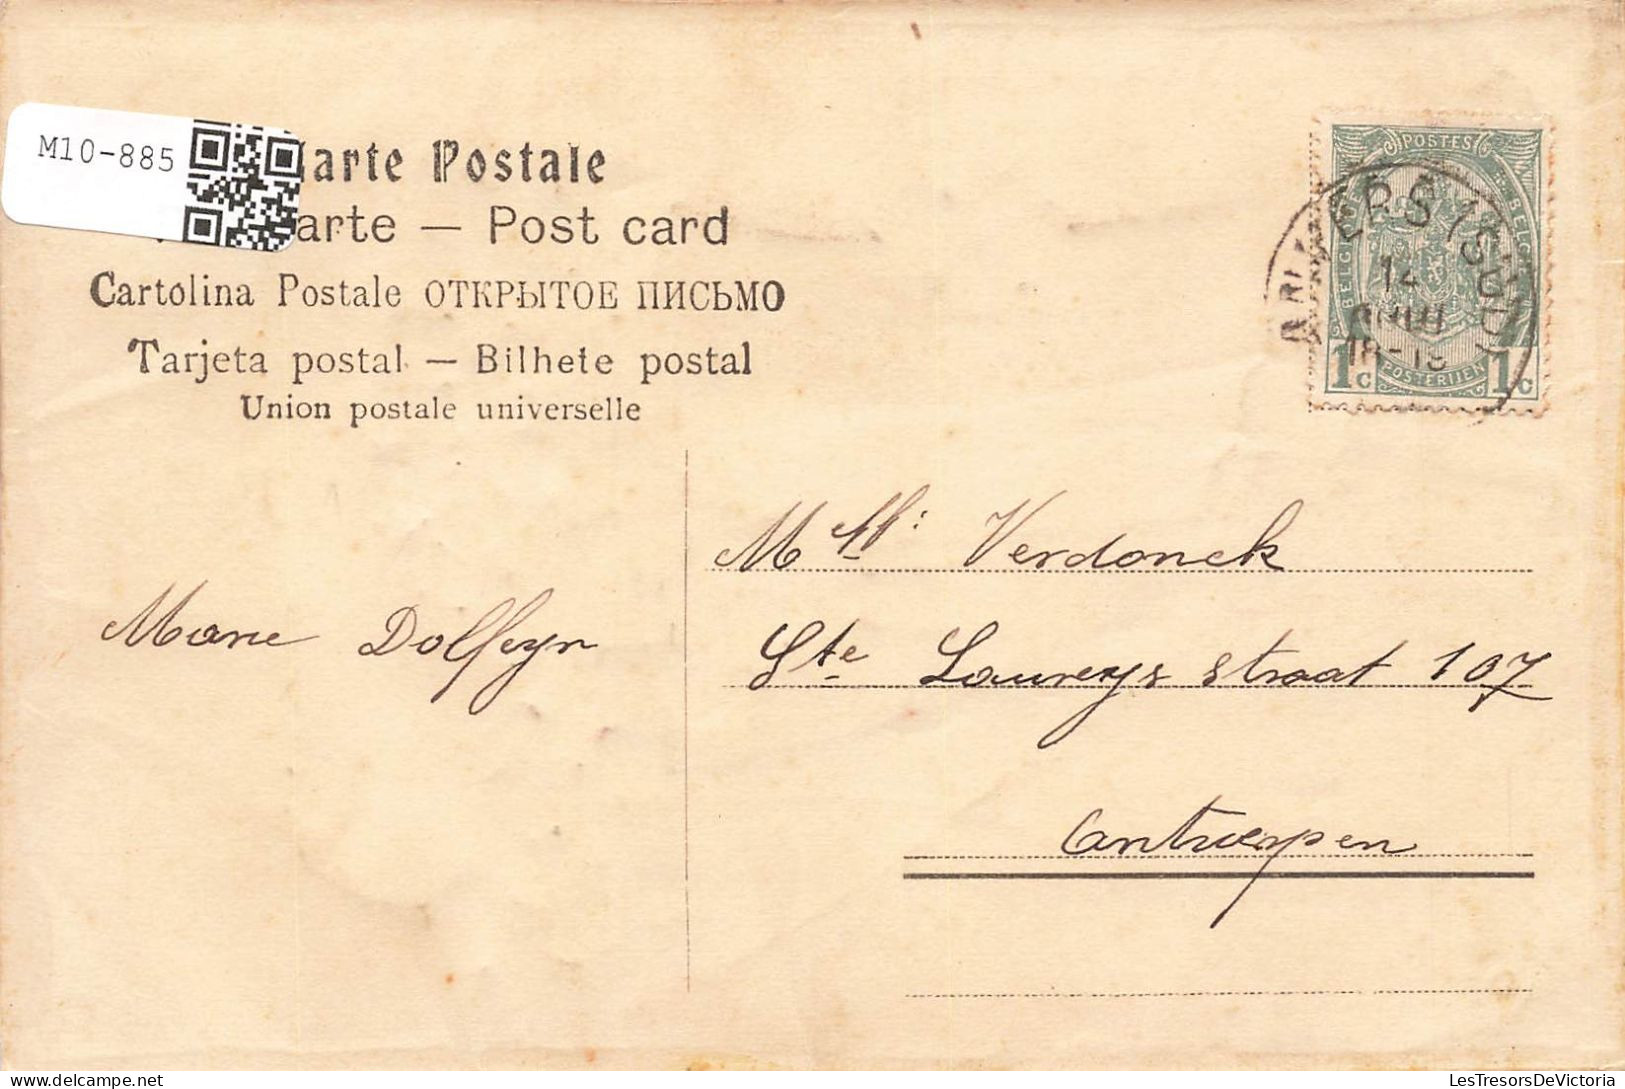 M10-885
Carte Postale
arte — Post card
Cartolina Postale ОТКРЫТОЕ ПИСЬМО
Tarjeta postal — Bilhete postal
Union postale universelle
POSTES
BELGIQUE BELGIË
1c POSTERIJEN 1c
ERS (SUD)
14
18-19
Mlle: Verdonck
Marie Dolfeyn
Ste Laureys straat 107
Antwerpen
LesTresorsDeVictoria